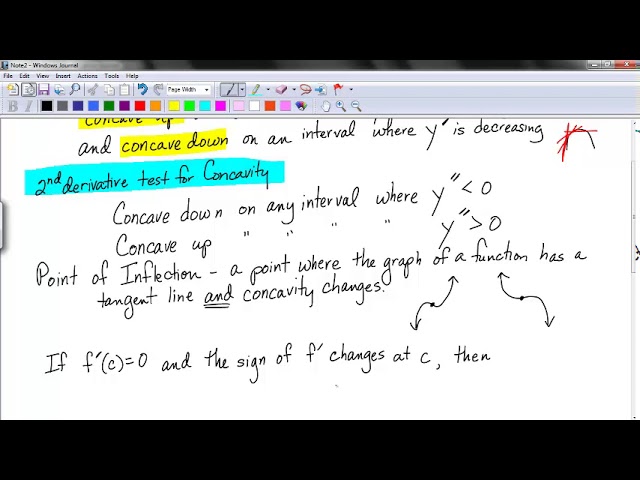 Note2 - Windows Journal
File Edit View Insert Actions Tools Help
Page Width
concave up
and concave down on an interval where y' is decreasing
2nd derivative test for Concavity
Concave down on any interval where y" < 0
Concave up " " " " y" > 0
Point of Inflection - a point where the graph of a function has a
tangent line and concavity changes.
If f'(c)=0 and the sign of f' changes at c, then